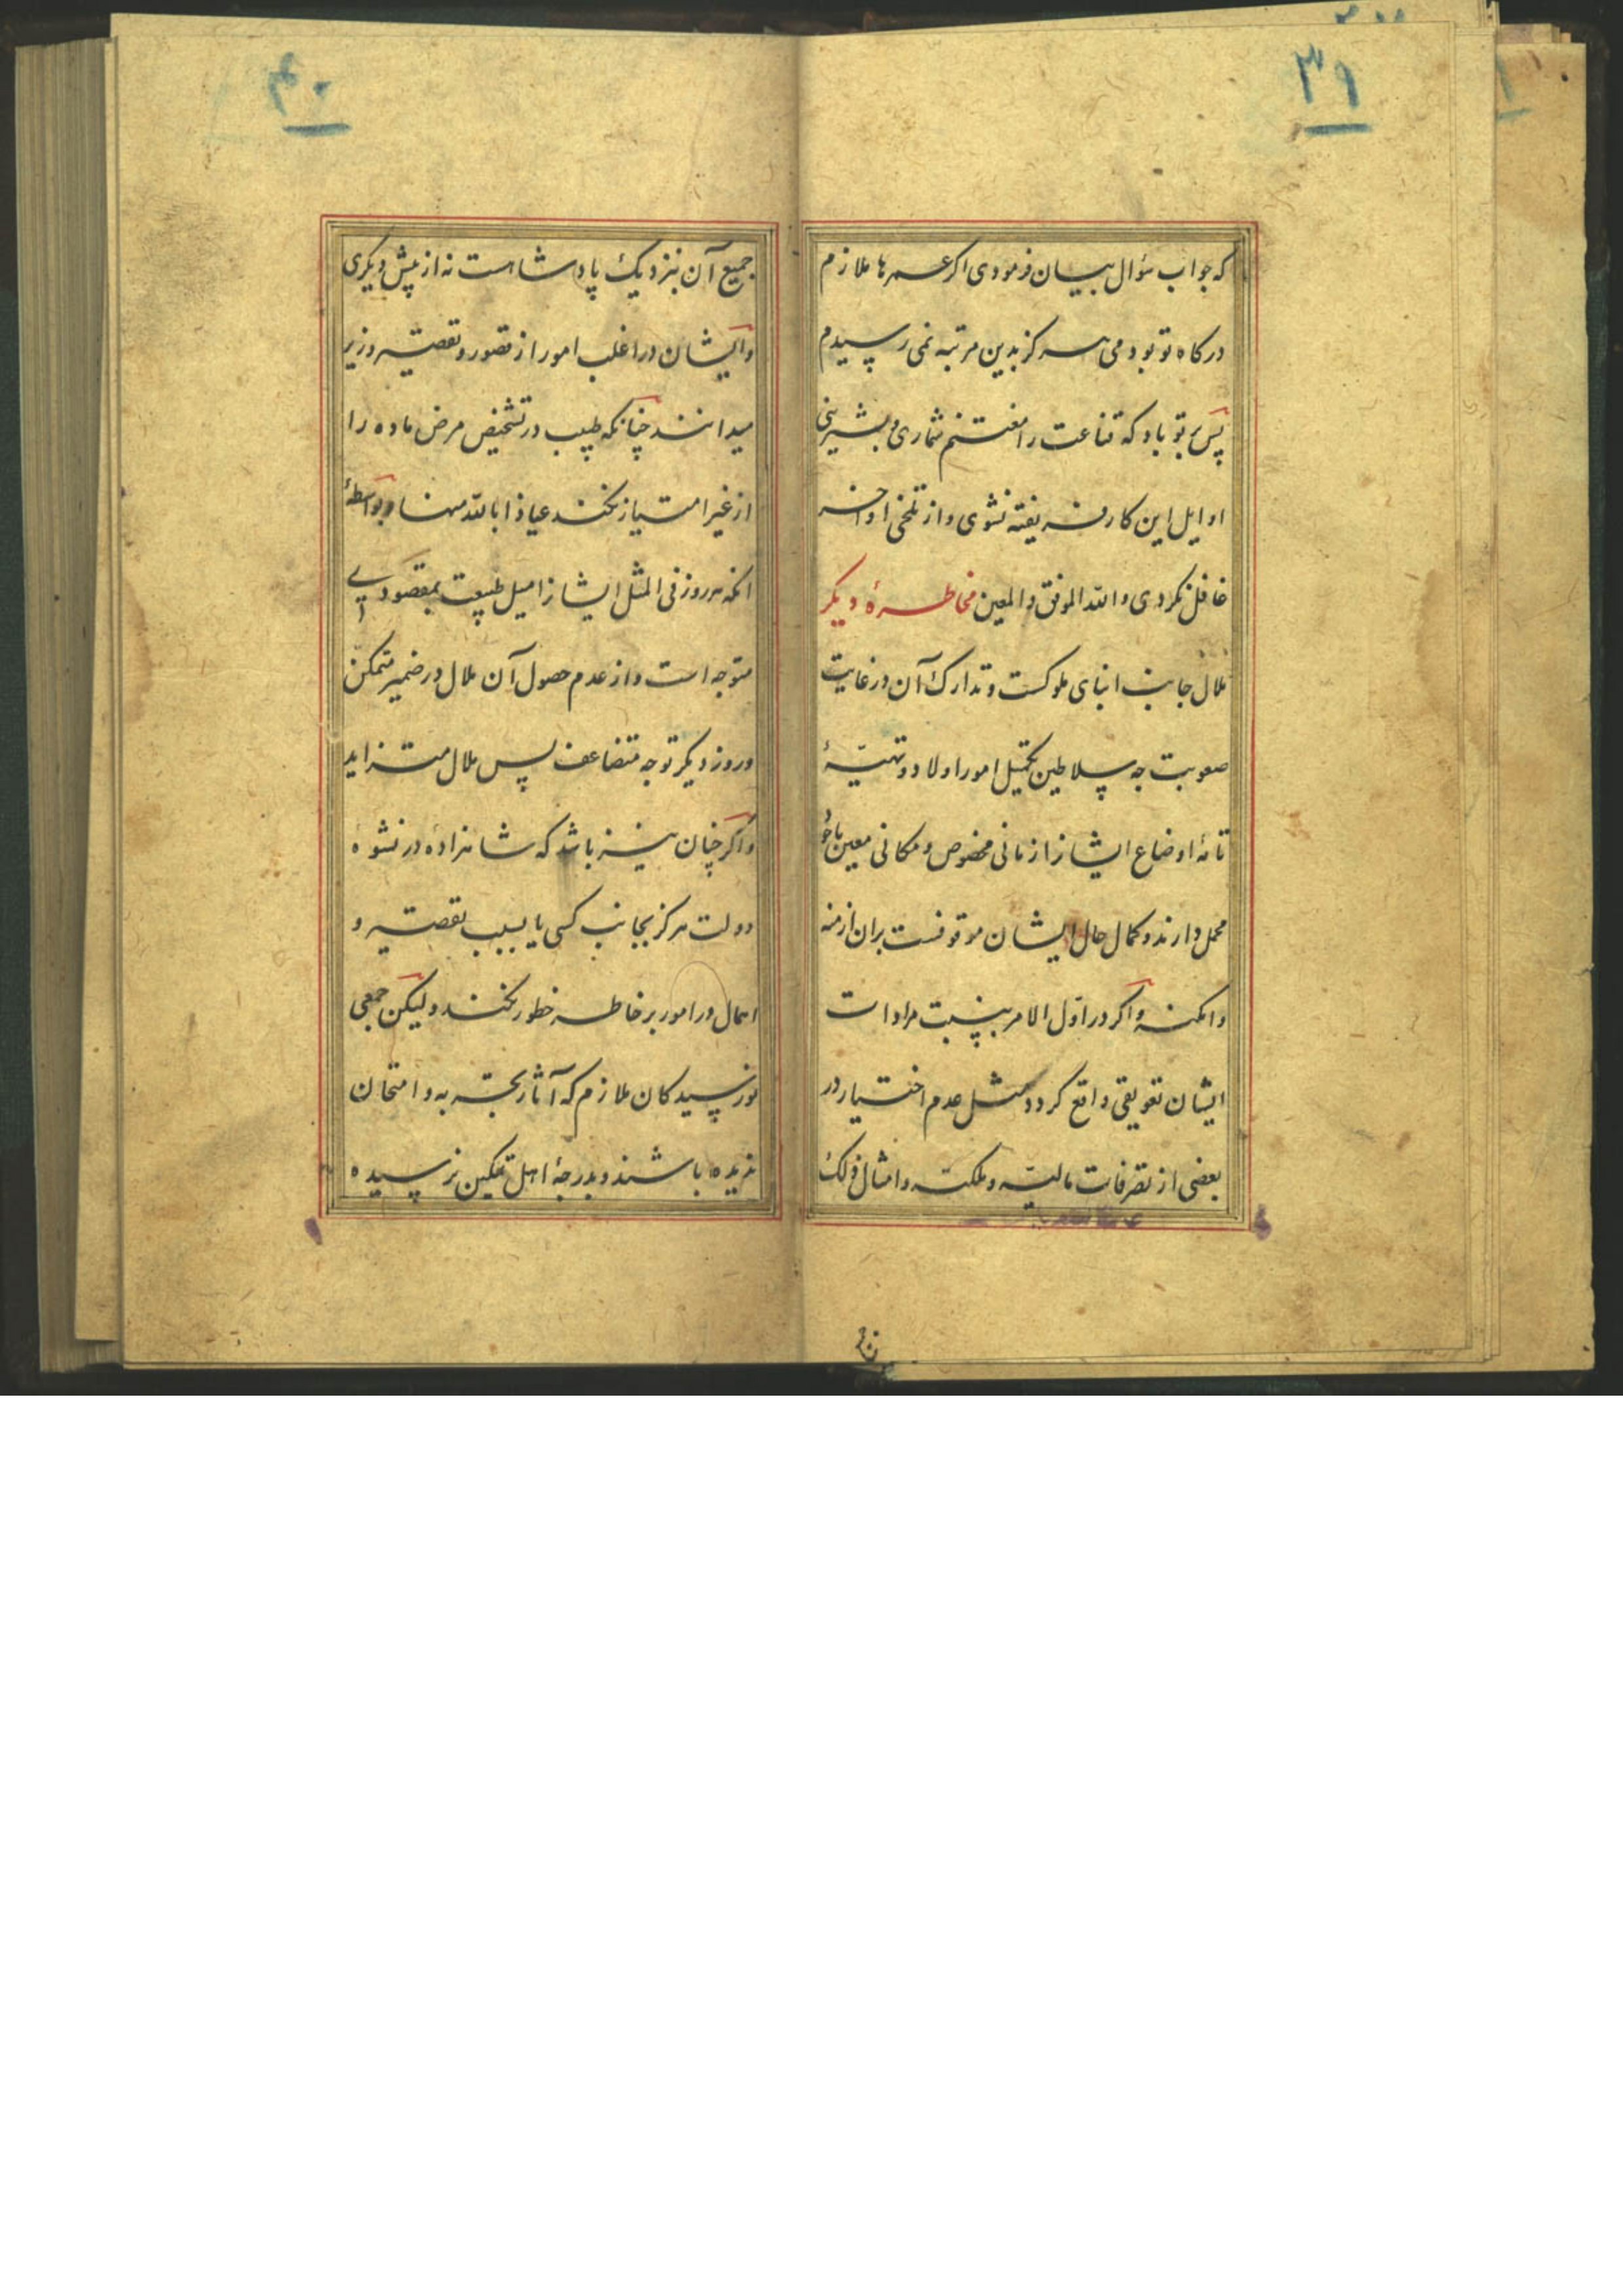 ۳۹
که جواب سؤال بیان فرمودی اکر عمرها ملازم
درکاه تو بودمی هرکز بدین مرتبه نمی رسیدم
پس بر تو باد که قناعت را مغتنم شماری و بشیرینی
اوایل این کار فریفته نشوی و از تلخی اواخر
غافل نکردی والله الموفق والمعین مخاطرهٔ دیکر
ملال جانب ابنای ملوکست و تدارک آن در غایت
صعوبت چه سلاطین تکمیل امور اولاد و تهیّهٔ
اوضاع ایشانرا زمانی مخصوص و مکانی معین
محمل دارند و کمال حال ایشان موقوفست بران ازمنه
وامکنه و اکر در اوّل الامر بنسبت مرادات
ایشان تعویقی واقع کردد مثل عدم اختیار در
بعضی از تصرفات مالیّه و ملکیّه و امثال ذلک
۴۰
جمیع آن بنزدیک پادشاهست نه از پیش دیکری
و ایشان در اغلب امور از قصور و تقصیر وزیر
میدانند چنانکه طبیب در تشخیص مرض ماده را
از غیر امتیاز نکند عیاذا بالله منها و بواسطهٔ
انکه هر روز فی المثل ایشانرا میل طبیعت بمقصودی
متوجه است و از عدم حصول آن ملال در ضمیر متمکن
و روز دیکر توجه متضاعف پس ملال متزاید
و اکر چنان نیز باشد که شاهزاده در نشوهٔ
دولت هرکز بجانب کسی یا بسبب تقصیر و
اهمال در امور بر خاطر خطور نکند ولیکن جمعی
نورسیدکان ملازم که آثار تجربه و امتحان
ندیده باشند و بدرجهٔ اهل تمکین نرسیده